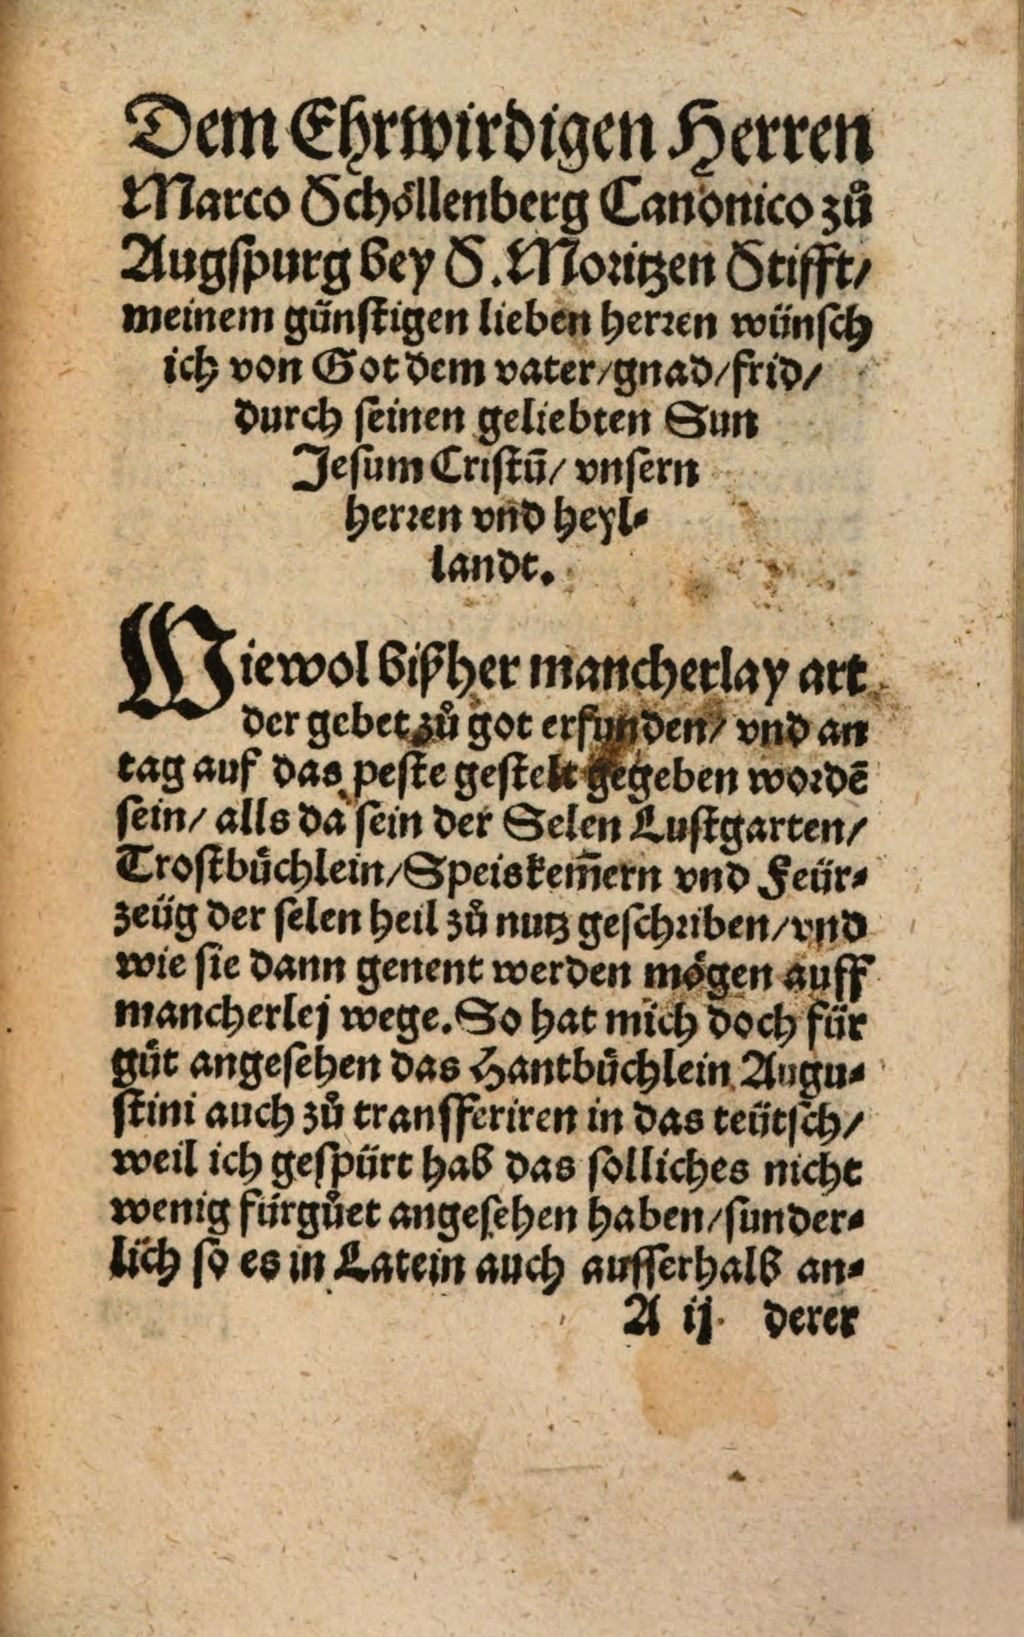 Dem Ehrwirdigen Herren
Marco Schöllenberg Canonico zů
Augspurg bey S. Moritzen Stifft/
meinem günstigen lieben herren wünsch
ich von Got dem vater/gnad/frid/
durch seinen geliebten Sun
Jesum Cristū/ vnsern
herren vnd heyl⸗
landt.
Wiewol bißher mancherlay art
der gebet zů got erfunden/ vnd an
tag auf das peste gestelt gegeben wordē
sein/ alls da sein der Selen Lustgarten/
Trostbüchlein/Speiskem̄ern vnd Feür⸗
zeüg der selen heil zů nutz geschriben/vnd
wie sie dann genent werden mögen auff
mancherlej wege. So hat mich doch für
gůt angesehen das Hantbüchlein Augu⸗
stini auch zů transferiren in das teütsch/
weil ich gespürt hab das solliches nicht
wenig fürgůet angesehen haben/sunder⸗
lich so es in Latein auch ausserhalb an⸗
A ij. derer